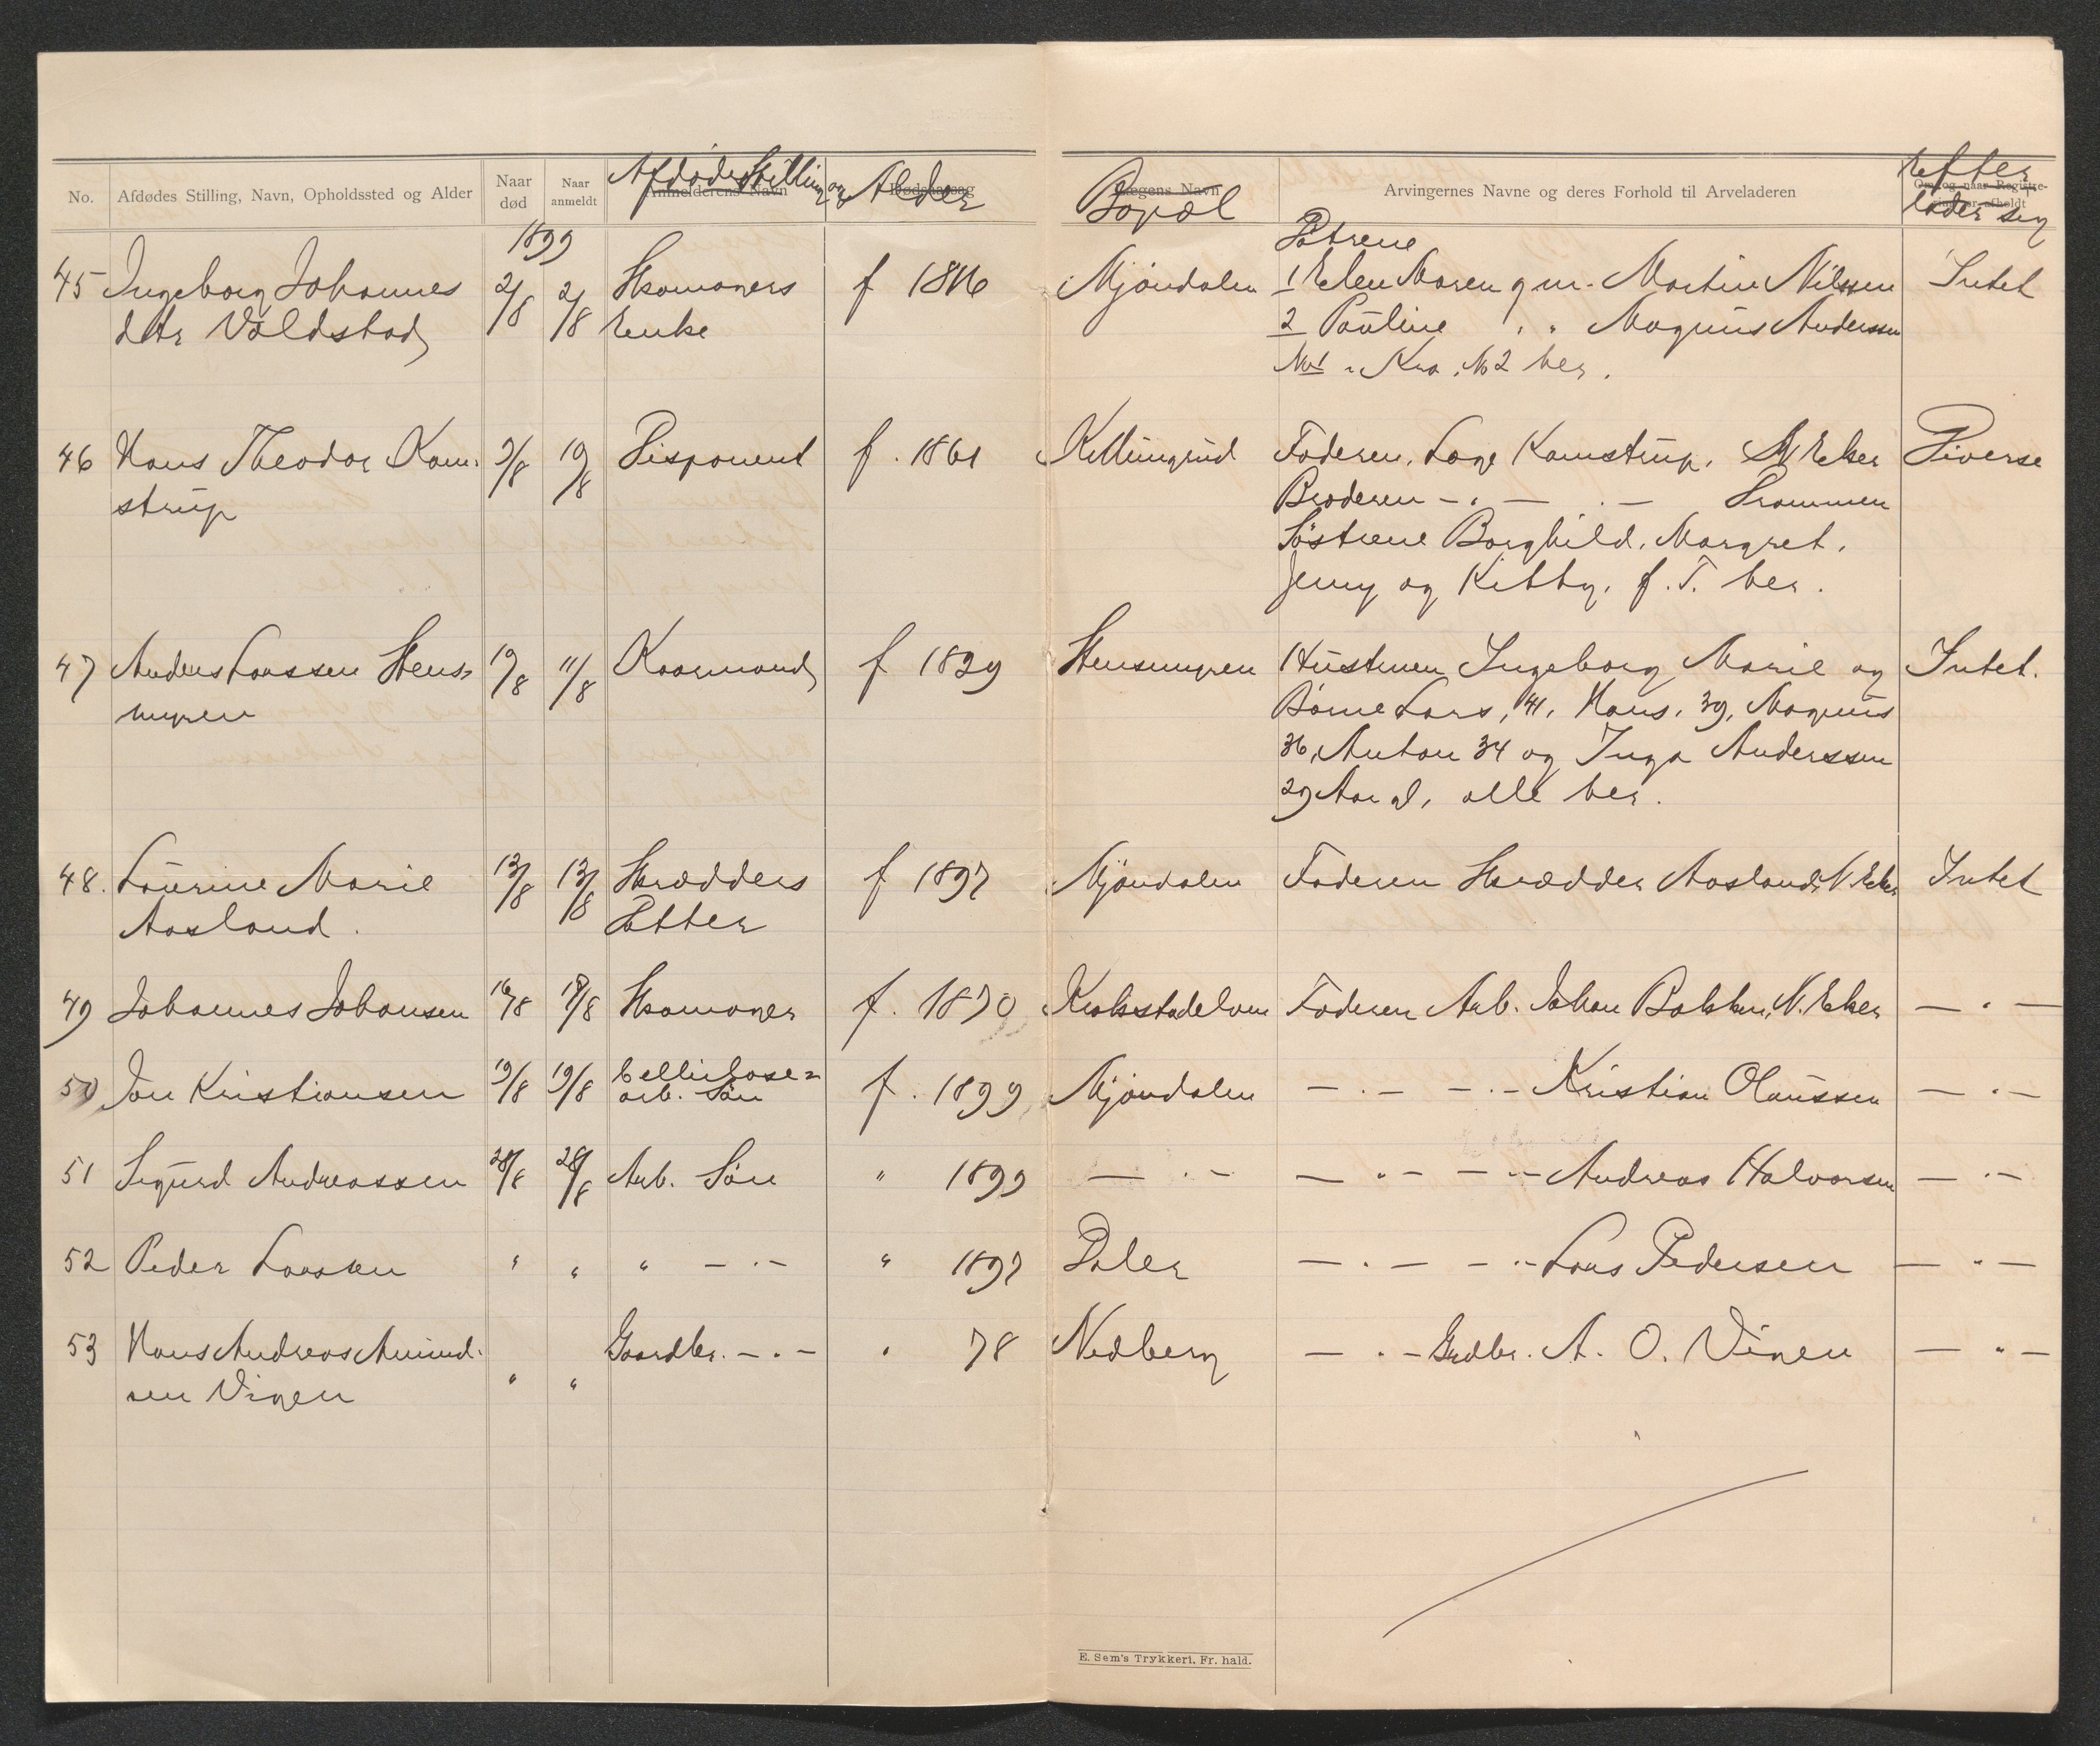 No. Afdødes Stilling, Navn, Opholdssted og Alder Naar død Naar anmeldt Anmelderens Navn Afdødes Stilling og Dødsaarsag Alder Lægens Navn Bopæl Arvingernes Navne og deres Forhold til Arveladeren Om og naar Registrering er afholdt Efterlader sig
1899
45 Ingeborg Johannes 2/8 2/8 Skomagers f 1816 Mjøndalen Døtrene
1 Elen Maren gm. Martin Nilssen Intet
dtr Voldstad Enke 2 Pauline " " Magnus Anderssen
No 1 Kra. No 2 her.
46 Hans Theodor Kam- 3/8 10/8 Disponent f. 1861 Killingrud Faderen, Lage Kamstrup, N Eker Diverse
strup Broderen - " - " - Drammen
Søstrene Borghild, Margret,
Jenny og Kitty, f. T. her.
47 Anders Larssen Stens- 10/8 11/8 Kaarmand f 1829 Stensmyren Hustruen Ingeborg Marie og Intet.
myren Børne Lars, 41, Hans, 39, Magnus
36, Anton 34 og Inga Anderssen
29 Aar gl, alle her.
48. Laurine Marie 13/8 13/8 Skrædders f 1897 Mjøndalen Faderen Skrædder Aasland, N. Eker Intet
Aasland. Datter
49 Johannes Johansen 16/8 18/8 Skomager f. 1870 Krokstadelven Faderen Arb. Johan Bakken, N. Eker - " -
50 Jon Kristiansen 19/8 19/8 Cellulose- f. 1899 Mjøndalen - " - - " - Kristian Olaussen - " -
arb. Søn
51 Sigurd Andreassen 28/8 28/8 Arb. Søn " 1899 - " - - " - - " - Andreas Halvorsen - " -
52 Peder Larssen " " " - " - " 1897 Daler - " - - " - Lars Pedersen - " -
53 Hans Andreas Amund- Gaardbr. - " - " 78 Nedberg - " - Grdbr. A. O. Vigen - " -
sen Vigen " "
E. Sem's Trykkeri, Fr. hald.